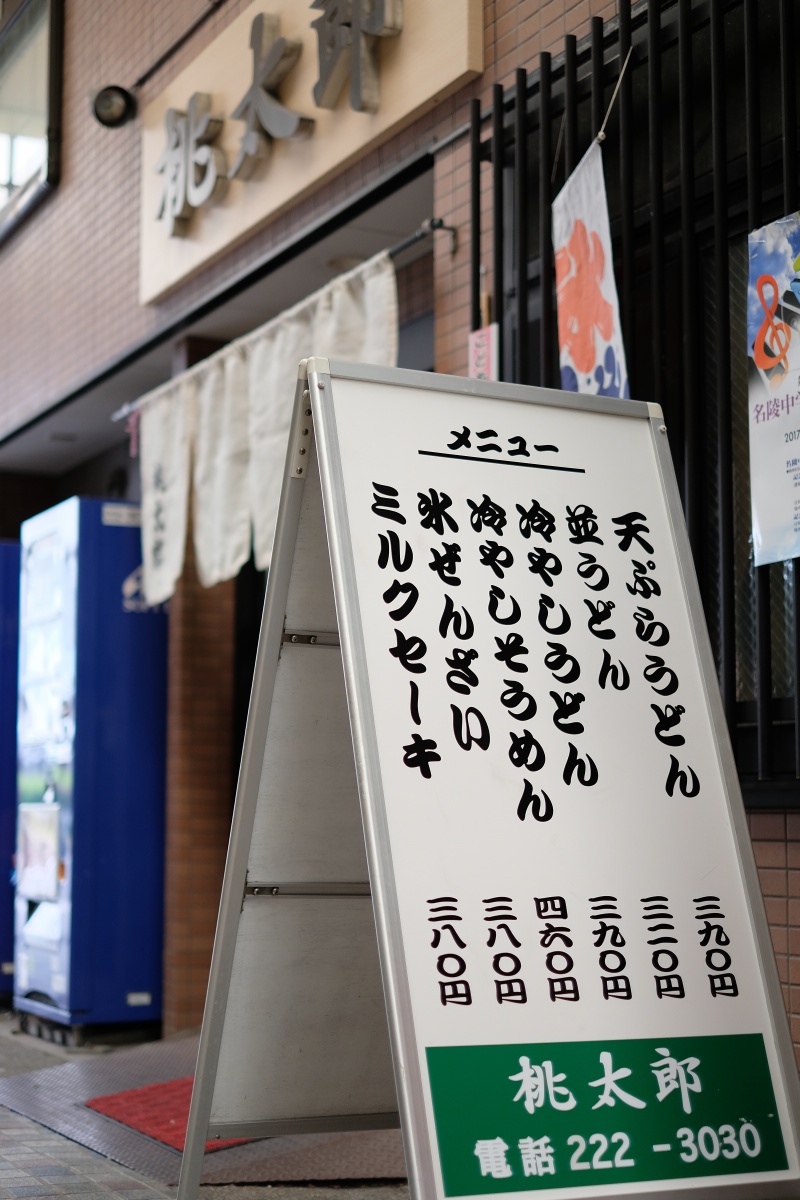 桃太郎
メニュー
天ぷらうどん 三九〇円
並うどん 三二〇円
冷やしうどん 三九〇円
冷やしそうめん 四六〇円
氷ぜんざい 三八〇円
ミルクセーキ 三八〇円
桃太郎
電話 222-3030
氷
名陵中
2017